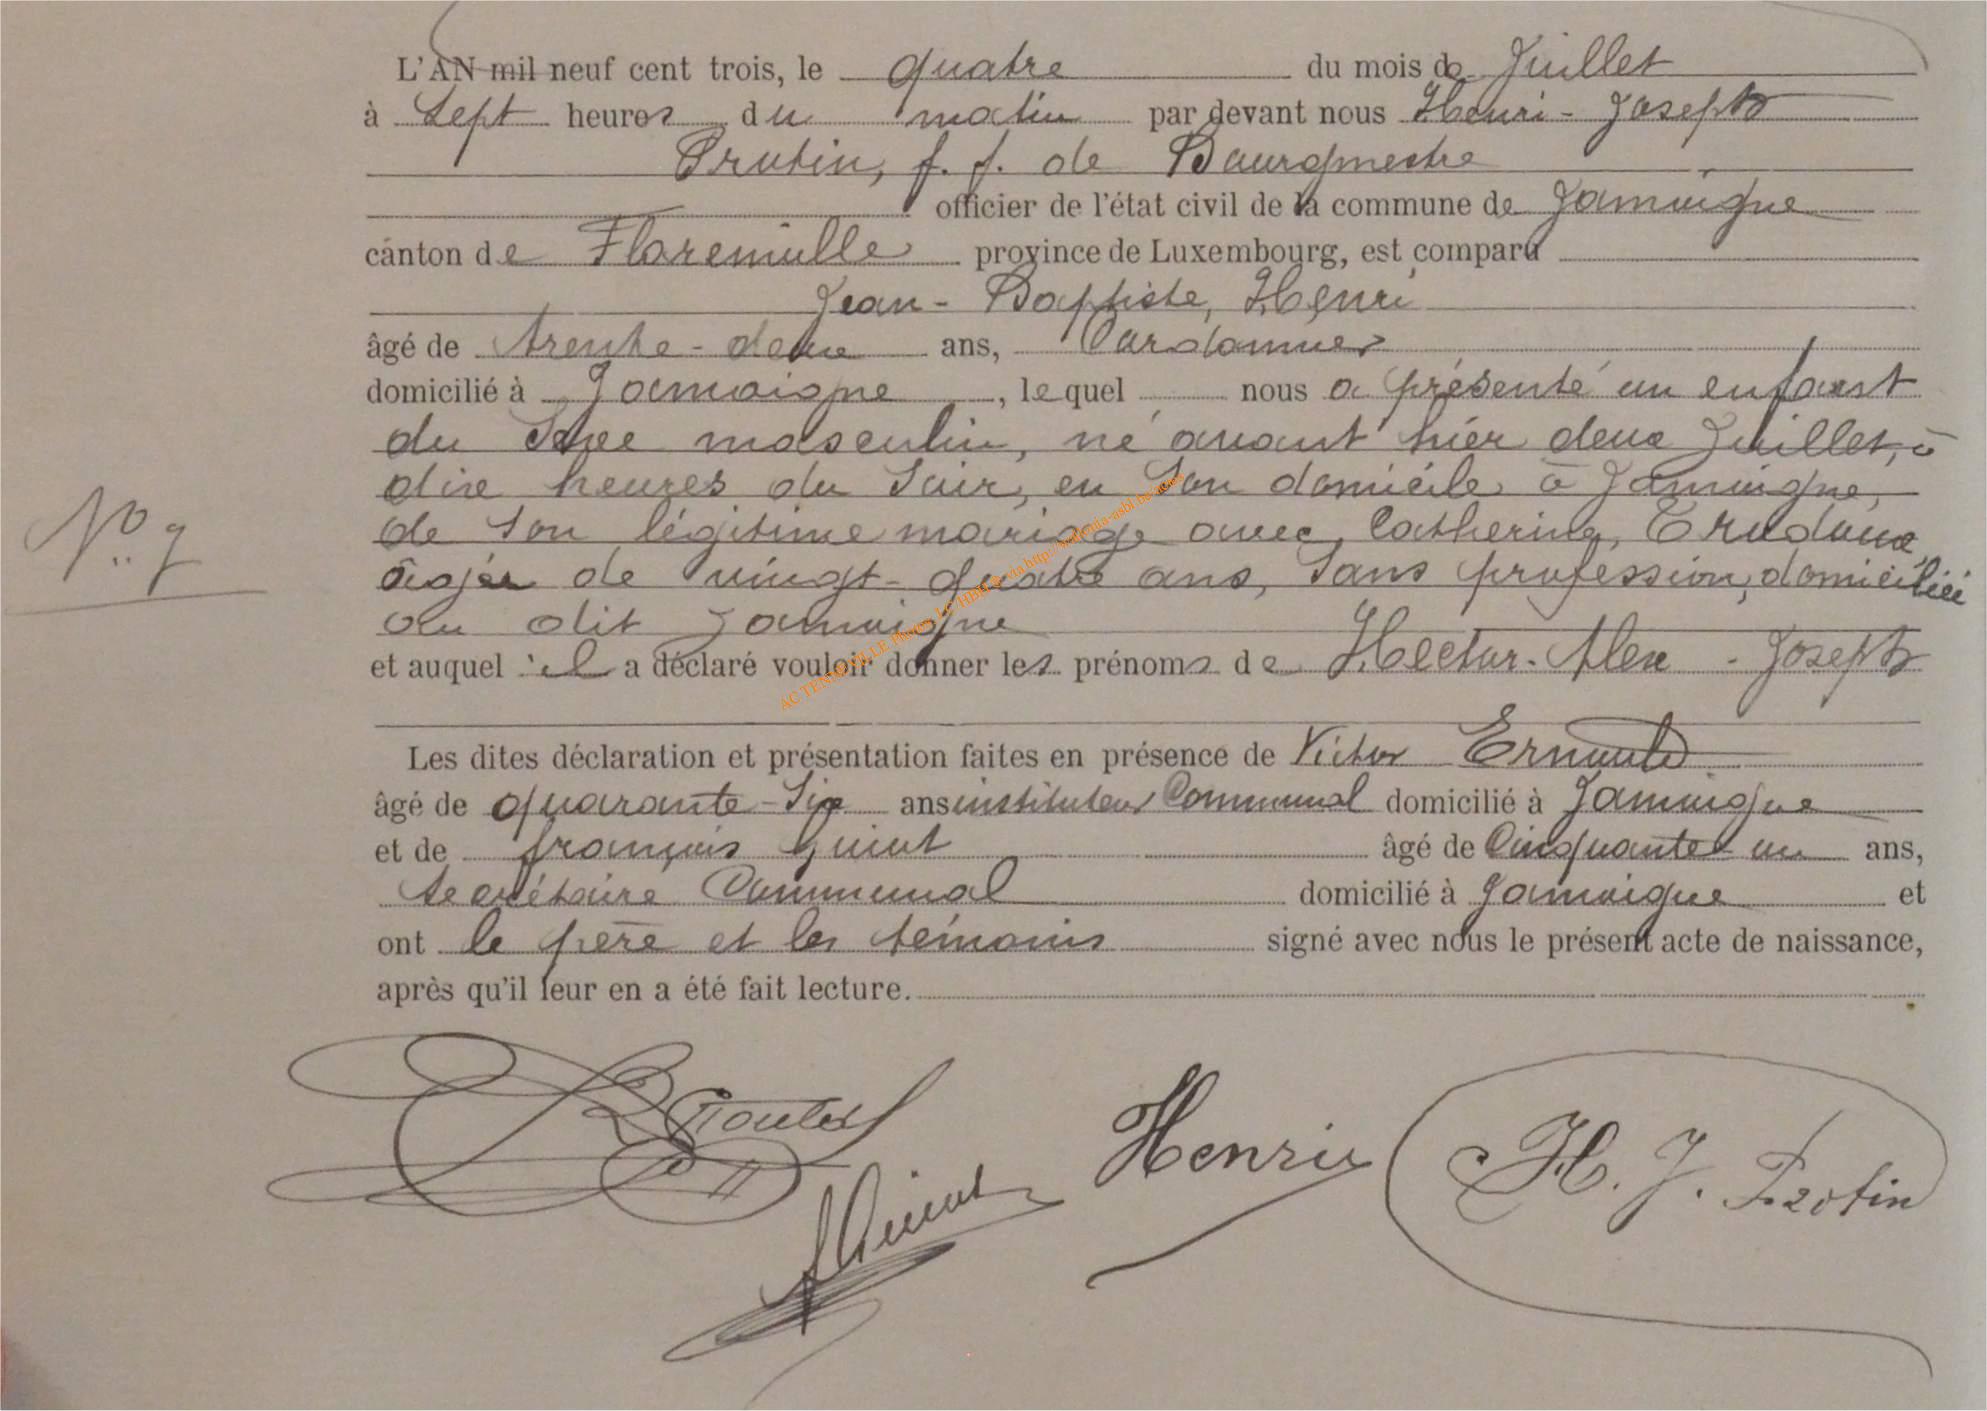 L'AN mil neuf cent trois, le quatre du mois de Juillet
à Sept heures du matin par devant nous Henri-Joseph
Protin, f. f. de Bourgmestre
officier de l'état civil de la commune de Jamoigne
canton de Florenville province de Luxembourg, est comparu
Jean-Baptiste, Henri
âgé de trente-deux ans, Cordonnier
domicilié à Jamoigne, lequel nous a présenté un enfant
du Sexe masculin, né avant hier deux Juillet, à
dix heures du Soir, en Son domicile à Jamoigne,
de Son légitime mariage avec Catherine,
âgée de vingt-quatre ans, Sans profession, domiciliée
au dit Jamoigne
et auquel il a déclaré vouloir donner les prénoms de Hector-Alex-Joseph
Les dites déclaration et présentation faites en présence de Victor
âgé de quarante-Six ans instituteur Communal domicilié à Jamoigne
et de françois Guiot âgé de Cinquante-un ans,
Secrétaire Communal domicilié à Jamoigne et
ont le père et les témoins signé avec nous le présent acte de naissance,
après qu'il leur en a été fait lecture.
N° 7
Henri
H. J. Protin
AC TENNEVILLE